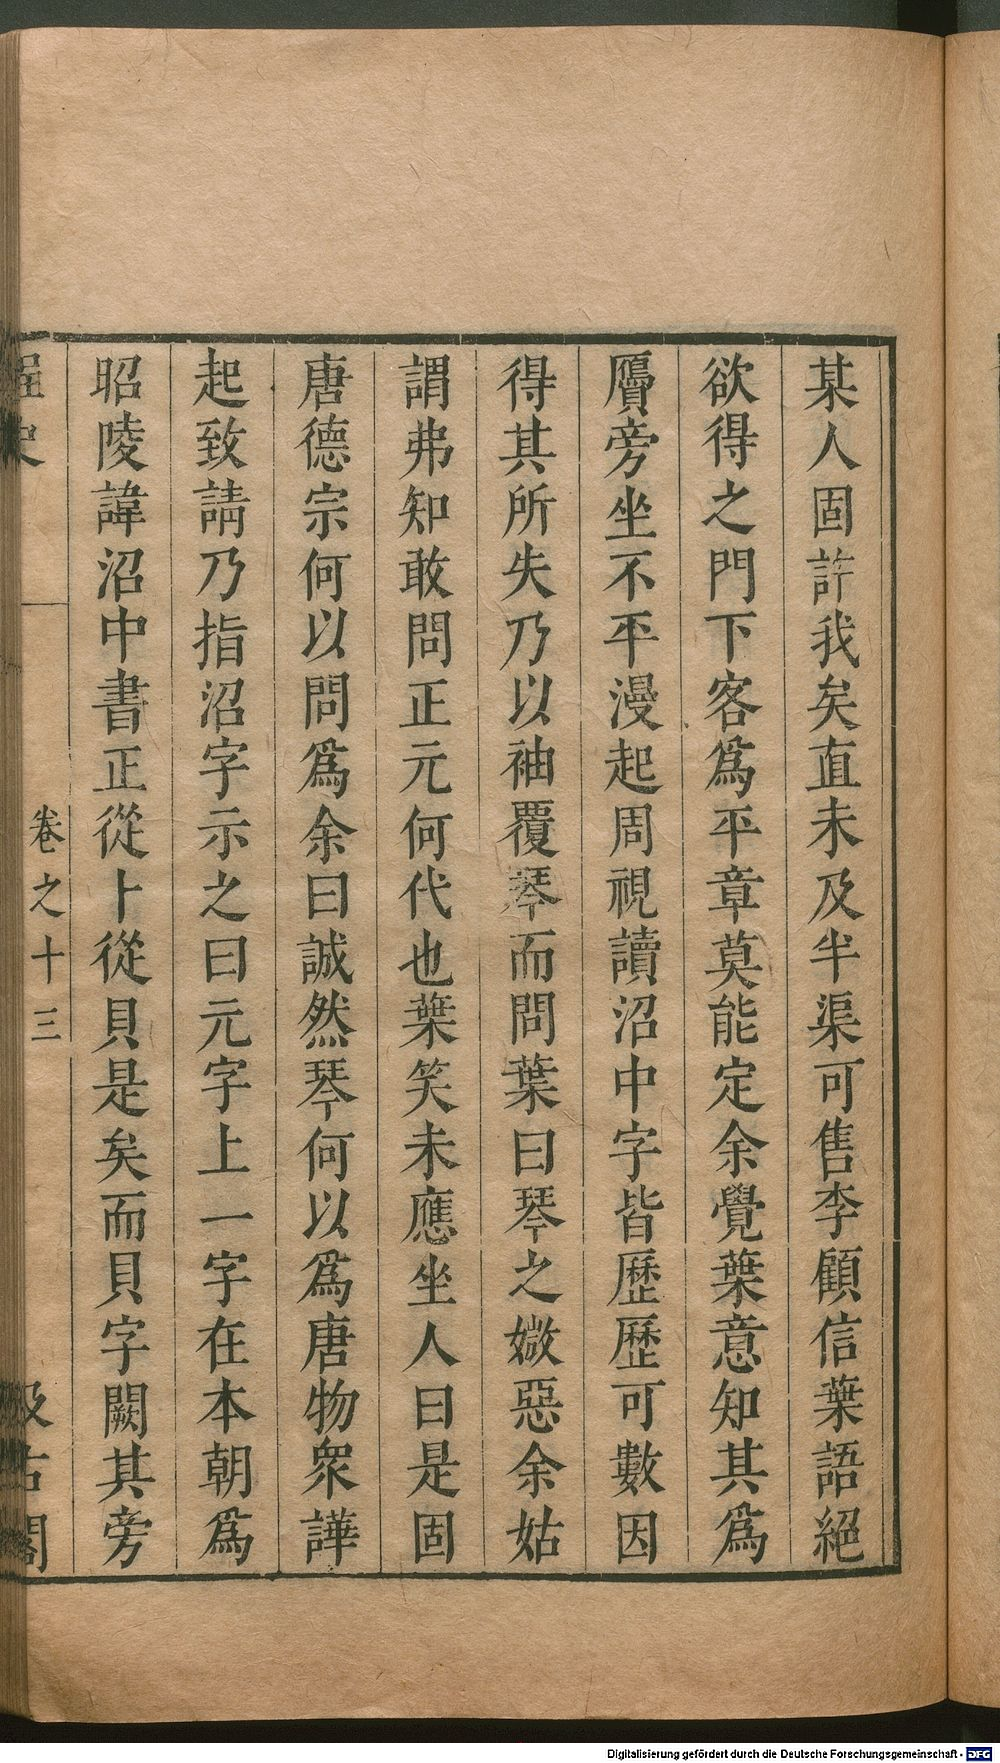 某人固許我矣直未及半渠可售李顧信葉語絕
欲得之門下客爲平章莫能定余覺葉意知其爲
贗旁坐不平漫起周視讀沼中字皆歷歷可數因
得其所失乃以袖覆琴而問葉曰琴之媺惡余姑
謂弗知敢問正元何代也葉笑未應坐人曰是固
唐德宗何以問爲余曰誠然琴何以爲唐物衆譁
起致請乃指沼字示之曰元字上一字在本朝爲
昭陵諱沼中書正從卜從貝是矣而貝字闕其旁
桯史
卷之十三
汲古閣
Digitalisierung gefördert durch die Deutsche Forschungsgemeinschaft - DFG